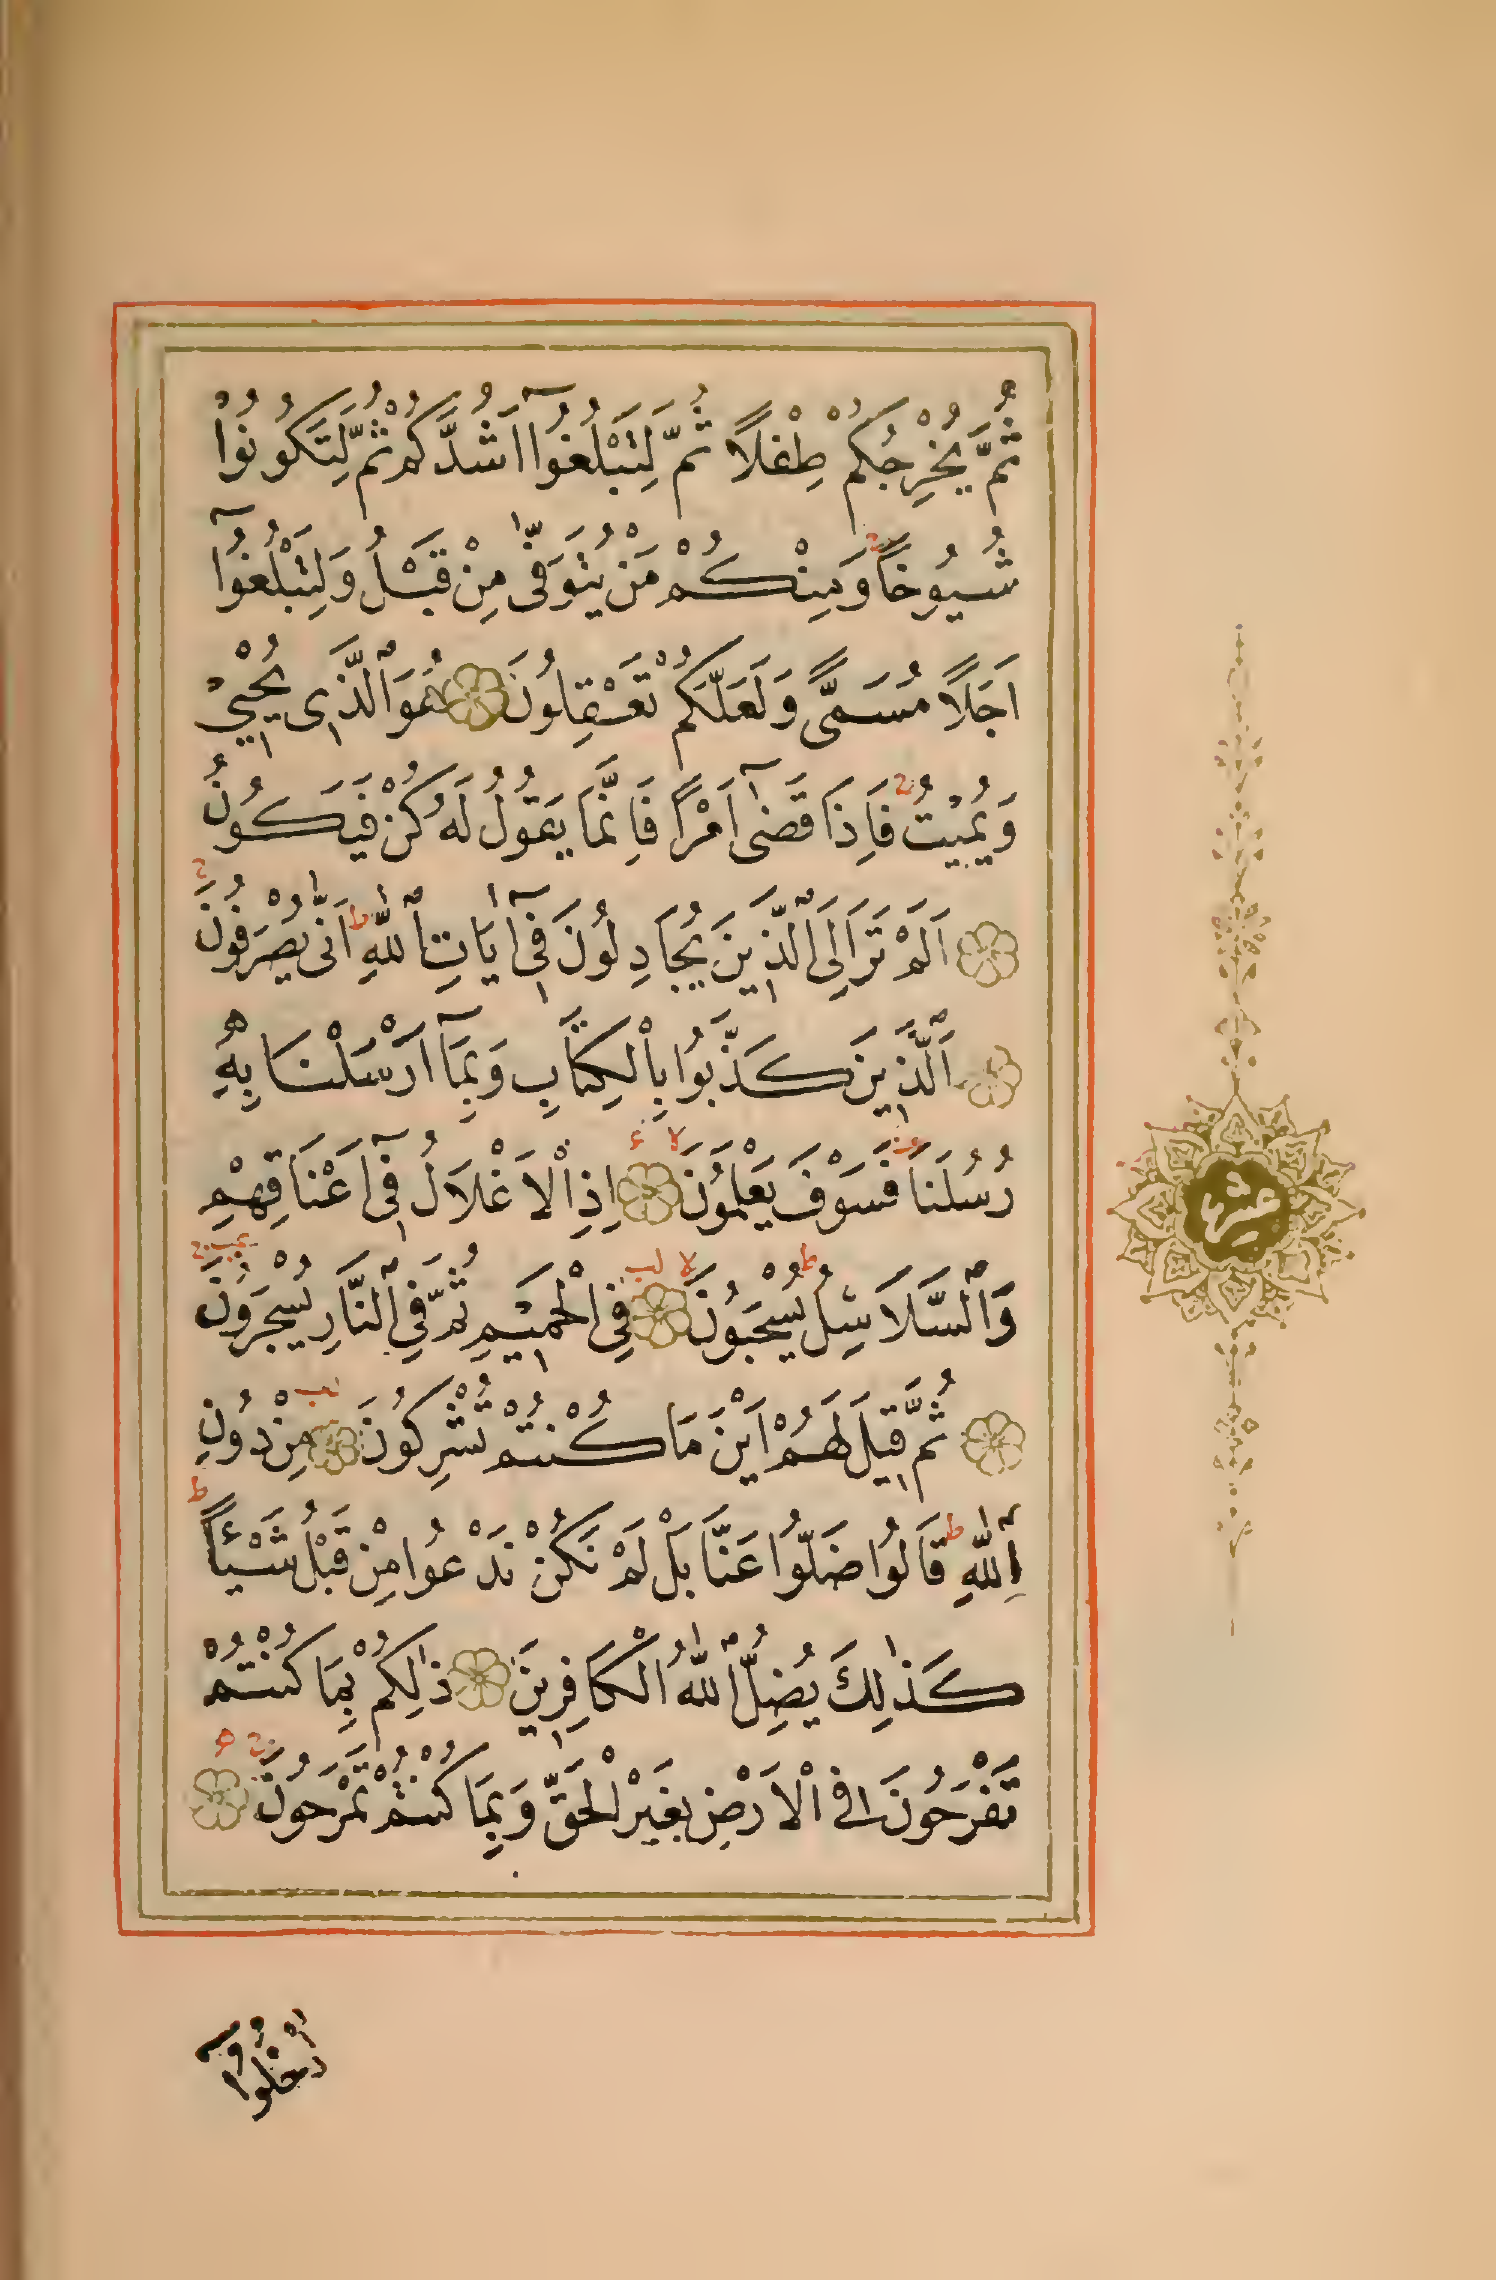 ثُمَّ يُخْرِجُكُمْ طِفْلًا ثُمَّ لِتَبْلُغُوٓا اَشُدَّكُمْ ثُمَّ لِتَكُونُوْا
شُيُوخًا ۚ وَمِنْكُمْ مَنْ يُتَوَفّٰى مِنْ قَبْلُ وَلِتَبْلُغُوٓا
اَجَلًا مُسَمًّى وَلَعَلَّكُمْ تَعْقِلُونَ هُوَ الَّذ۪ى يُحْي۪ي
وَيُم۪يتُ ۚ فَاِذَا قَضٰٓى اَمْرًا فَاِنَّمَا يَقُولُ لَهُ كُنْ فَيَكُونُ
اَلَمْ تَرَ اِلَى الَّذ۪ينَ يُجَادِلُونَ ف۪ٓى اٰيَاتِ اللّٰهِ ط اَنّٰى يُصْرَفُونَ ۚ
اَلَّذ۪ينَ كَذَّبُوا بِالْكِتَابِ وَبِمَٓا اَرْسَلْنَا بِهِ
رُسُلَنَا فَسَوْفَ يَعْلَمُونَ لا اِذِ الْاَغْلَالُ ف۪ٓى اَعْنَاقِهِمْ
وَالسَّلَاسِلُ ط يُسْحَبُونَ لا فِى الْحَم۪يمِ ثُمَّ فِى النَّارِ يُسْجَرُونَ ۚ
ثُمَّ ق۪يلَ لَهُمْ اَيْنَ مَا كُنْتُمْ تُشْرِكُونَ مِنْ دُونِ
اللّٰهِ ط قَالُوا ضَلُّوا عَنَّا بَلْ لَمْ نَكُنْ نَدْعُوا مِنْ قَبْلُ شَيْـًٔا ط
كَذٰلِكَ يُضِلُّ اللّٰهُ الْكَافِر۪ينَ ذٰلِكُمْ بِمَا كُنْتُمْ
تَفْرَحُونَ فِى الْاَرْضِ بِغَيْرِ الْحَقِّ وَبِمَا كُنْتُمْ تَمْرَحُونَ ۚ
عشر
اُدْخُلُوٓا